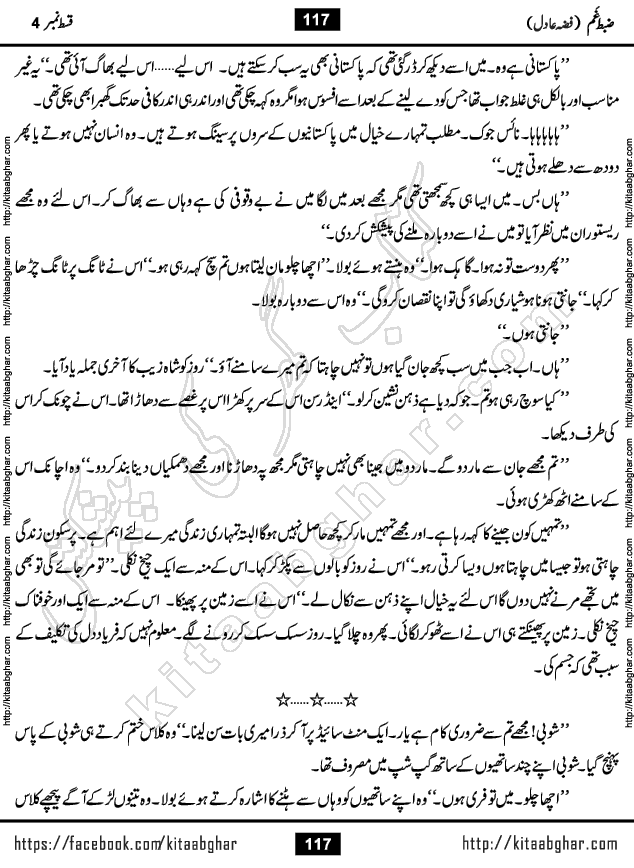 ضبطِ غم (فضہ عادل)
117
قسط نمبر 4
’’پاکستانی ہے وہ۔ میں اسے دیکھ کر ڈر گئی تھی کہ پاکستانی بھی یہ سب کر سکتے ہیں۔ اس لیے......اس لیے بھاگ آئی تھی۔‘‘ یہ غیر
مناسب اور بالکل ہی غلط جواب تھا جس کو دے لینے کے بعد اسے افسوس ہوا مگر وہ کہہ چکی تھی اور اندر ہی اندر کافی حد تک گھبرا بھی چکی تھی۔
’’ہاہاہاہا۔ نائس جوک۔ مطلب تمہارے خیال میں پاکستانیوں کے سروں پر سینگ ہوتے ہیں۔ وہ انسان نہیں ہوتے یا پھر
دودھ سے دھلے ہوتی ہیں۔‘‘
’’ہاں بس۔ میں ایسا ہی کچھ سمجھتی تھی مگر مجھے بعد میں لگا میں نے بے وقوفی کی ہے وہاں سے بھاگ کر۔ اس لئے وہ مجھے
ریستوران میں نظر آیا تو میں نے اسے دوبارہ ملنے کی پیشکش کر دی۔‘‘
’’پھر دوست تو نہ ہوا۔ گاہک ہوا۔‘‘ وہ ہنستے ہوئے بولا۔ ’’اچھا چلو مان لیتا ہوں تم سچ کہہ رہی ہو۔‘‘ اس نے ٹانگ پر ٹانگ چڑھا
کر کہا۔ ’’جانتی ہو نا ہوشیاری دکھاؤ گی تو اپنا نقصان کرو گی۔‘‘ وہ اس سے دوبارہ بولا۔
’’جانتی ہوں۔‘‘
’’ہاں۔ اب جب میں سب کچھ جان گیا ہوں تو نہیں چاہتا کہ تم میرے سامنے آؤ۔‘‘ روز کو شاہ زیب کا آخری جملہ یاد آیا۔
’’کیا سوچ رہی ہو تم۔ جو کہ دیا ہے ذہن نشین کر لو۔‘‘ اینڈرسن اس کے سر پر کھڑا اس پر غصے سے دھاڑا تھا۔ اس نے چونک کر اس
کی طرف دیکھا۔
’’تم مجھے جان سے مار دو گے۔ مار دو میں جینا بھی نہیں چاہتی مگر مجھ پہ دھاڑنا اور مجھے دھمکیاں دینا بند کر دو۔‘‘ وہ اچانک اس
کے سامنے اٹھ کھڑی ہوئی۔
’’تمہیں کون جینے کا کہہ رہا ہے۔ اور مجھے تمہیں مار کر کچھ حاصل نہیں ہو گا البتہ تمہاری زندگی میرے لئے اہم ہے۔ پر سکون زندگی
چاہتی ہو تو جیسا میں چاہتا ہوں ویسا کرتی رہو۔‘‘ اس نے روز کو بالوں سے پکڑ کر کہا۔ اس کے منہ سے ایک چیخ نکلی۔ ’’تو مر جائے گی تو بھی
میں تجھے مرنے نہیں دوں گا اس لئے یہ خیال اپنے ذہن سے نکال لے۔‘‘ اس نے اسے زمین پر پھینکا۔ اس کے منہ سے ایک اور خوفناک
چیخ نکلی۔ زمین پر پھینکتے ہی اس نے اسے ٹھوکر لگائی۔ پھر وہ چلا گیا۔ روز سسک سسک کر رونے لگے۔ معلوم نہیں کہ فریاد دل کی تکلیف کے
سبب تھی کہ جسم کی۔
☆......☆......☆
’’شوبی! مجھے تم سے ضروری کام ہے یار۔ ایک منٹ سائیڈ پر آ کر ذرا میری بات سن لینا۔‘‘ وہ کلاس ختم کرتے ہی شوبی کے پاس
پہنچ گیا۔ شوبی اپنے چند ساتھیوں کے ساتھ گپ شپ میں مصروف تھا۔
’’اچھا چلو۔ میں تو فری ہوں۔‘‘ وہ اپنے ساتھیوں کو وہاں سے ہٹنے کا اشارہ کرتے ہوئے بولا۔ وہ تینوں لڑکے آگے پیچھے کلاس
https://facebook.com/kitaabghar
117
http://kitaabghar.com
http://kitaabghar.com
http://kitaabghar.com
http://kitaabghar.com
http://kitaabghar.com
http://kitaabghar.com
http://kitaabghar.com
http://kitaabghar.com
http://kitaabghar.com
http://kitaabghar.com
http://kitaabghar.com
http://kitaabghar.com
http://kitaabghar.com
کتاب گھر کی پیشکش
kitaabghar.com